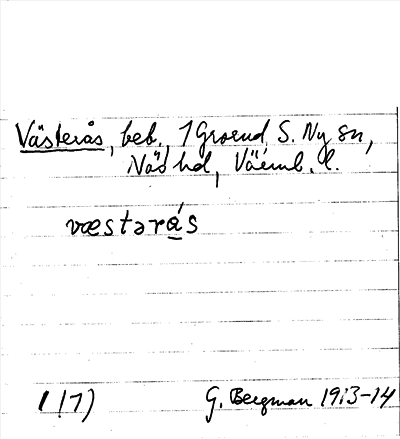 Västerås, beb., 1 Groend, S. Ny sn,
Näs hd, Värml. l.
væstərás
1 17)
G. Bergman 1913-14